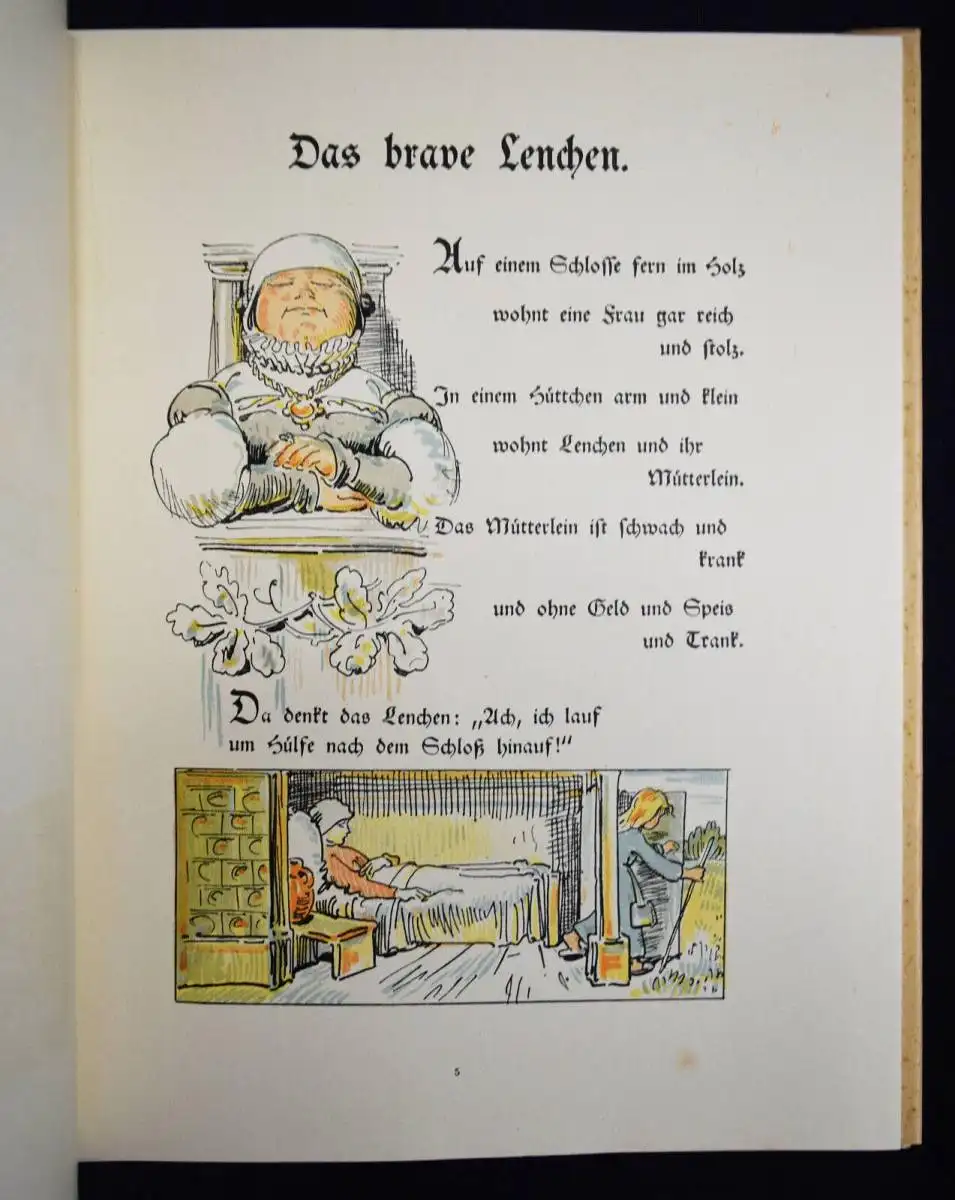 Das brave Lenchen.
Auf einem Schlosse fern im Holz
wohnt eine Frau gar reich
und stolz.
In einem Hüttchen arm und klein
wohnt Lenchen und ihr
Mütterlein.
Das Mütterlein ist schwach und
krank
und ohne Geld und Speis
und Trank.
Da denkt das Lenchen: „Ach, ich lauf
um Hülfe nach dem Schloß hinauf!“
5